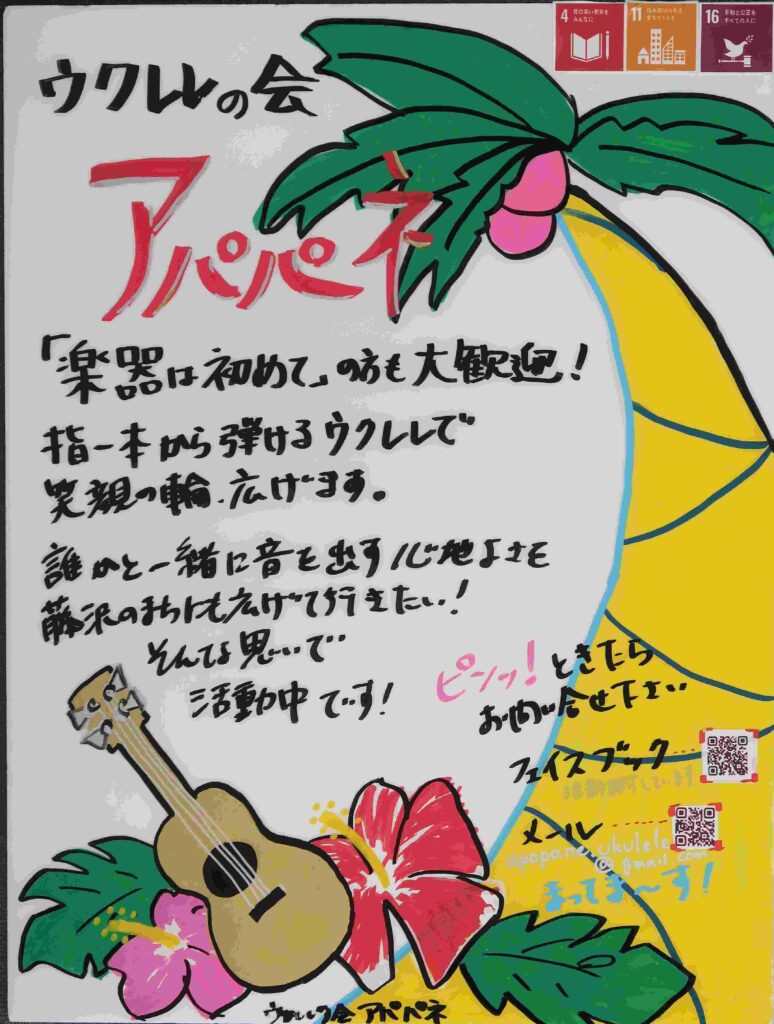 4 質の高い教育を
みんなに
11 住み続けられる
まちづくりを
16 平和と公正を
すべての人に
ウクレレの会
アパパネ
「楽器は初めて」の方も大歓迎!
指一本から弾けるウクレレで
笑顔の輪、広げます。
誰かと一緒に音を出す心地よさを
藤沢のまちにも広げて行きたい!
そんな思いで
活動中です!
ピンッ!ときたら
お問い合せ下さい
フェイスブック
メール
apapane.ukulele
@gmail.com
まってま〜す!
ウクレレの会 アパパネ